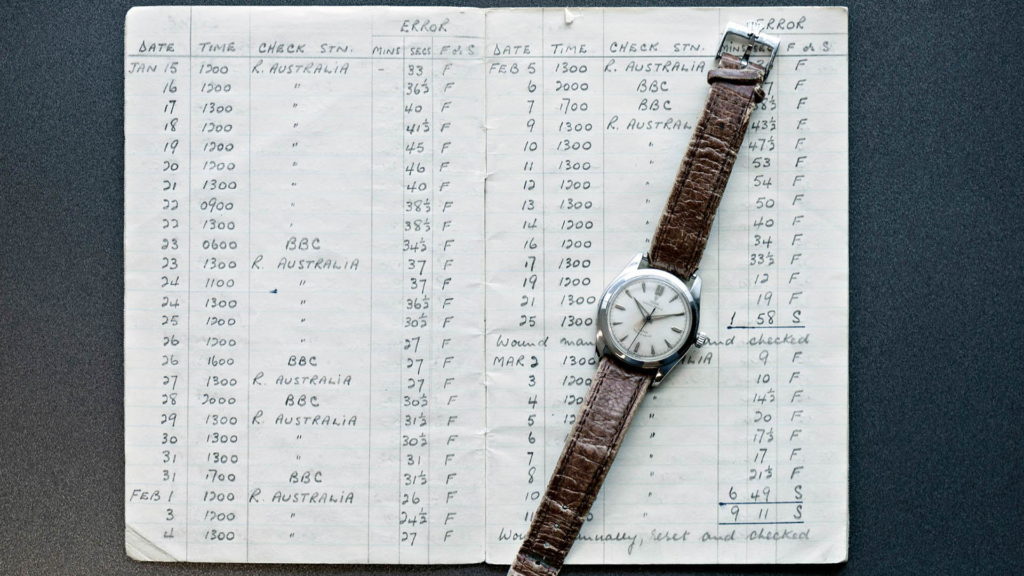 ERROR
DATE TIME CHECK STN. MINS SECS F or S
JAN 15 1200 R. AUSTRALIA - 33 F
16 1200 " 36½ F
17 1300 " 40 F
18 1200 " 41½ F
19 1200 " 45 F
20 1200 " 46 F
21 1300 " 40 F
22 0900 " 38½ F
22 1300 " 38½ F
23 0600 BBC 34½ F
23 1300 R. AUSTRALIA 37 F
24 1100 " 37 F
24 1300 " 36½ F
25 1200 " 30½ F
26 1200 " 27 F
26 1600 BBC 27 F
27 1300 R. AUSTRALIA 27 F
28 2000 BBC 30½ F
29 1300 R. AUSTRALIA 31½ F
30 1300 " 30½ F
31 1300 " 31 F
31 1700 BBC 31½ F
FEB 1 1200 R. AUSTRALIA 26 F
3 1200 " 24½ F
4 1300 " 27 F
ERROR
DATE TIME CHECK STN. MINS SECS F or S
FEB 5 1300 R. AUSTRALIA F
6 2000 BBC F
7 1700 BBC F
9 1300 R. AUSTRAL 43½ F
10 1300 " 47½ F
11 1300 " 53 F
12 1200 " 54 F
13 1300 " 50 F
14 1200 " 40 F
16 1200 34 F
17 1300 33½ F
19 1200 12 F
21 1300 19 F
25 1300 1 58 S
Wound and checked
MAR 2 1300 9 F
3 1200 10 F
4 " 14½ F
5 " 20 F
6 " 17½ F
7 " 17 F
8 " 21½ F
10 " 6 49 S
" 9 11 S
reset and checked